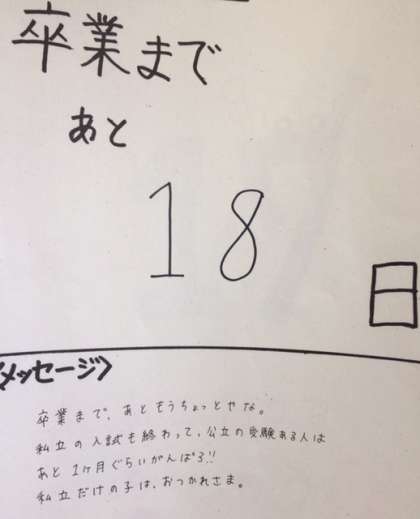 卒業まで
あと
18
日
〈メッセージ〉
卒業まで、あともうちょっとやな。
私立の入試も終わって、公立の受験ある人は
あと1ヶ月ぐらいがんばろ!!
私立だけの子は、おつかれさま。